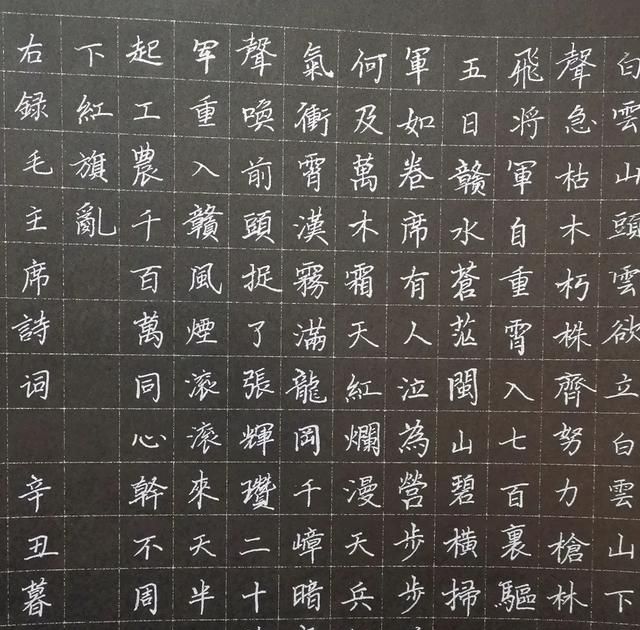 白雲山頭雲欲立白雲山下
聲急枯木朽株齊努力槍林
飛將軍自重霄入七百裏驅
五日贛水蒼茫閩山碧橫掃
軍如卷席有人泣為營步步
何及萬木霜天紅爛漫天兵
氣衝霄漢霧滿龍岡千嶂暗
聲喚前頭捉了張輝瓚二十
军重入贛風煙滾滾來天半
起工農千百萬同心幹不周
下紅旗亂
右録毛主席詩词 辛丑暮